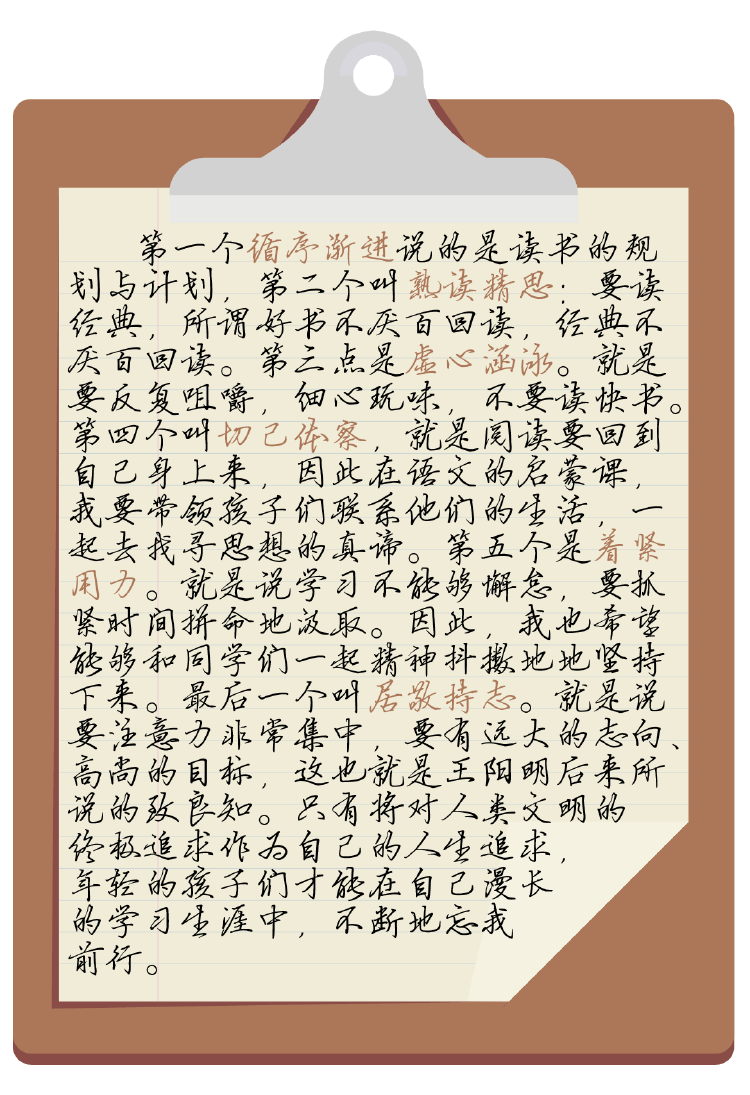 第一个循序渐进说的是读书的规
划与计划，第二个叫熟读精思：要读
经典，所谓好书不厌百回读，经典不
厌百回读。第三点是虚心涵泳。就是
要反复咀嚼，细心玩味，不要读快书。
第四个叫切己体察，就是阅读要回到
自己身上来，因此在语文的启蒙课，
我要带领孩子们联系他们的生活，一
起去找寻思想的真谛。第五个是着紧
用力。就是说学习不能够懈怠，要抓
紧时间拼命地汲取。因此，我也希望
能够和同学们一起精神抖擞地地坚持
下来。最后一个叫居敬持志。就是说
要注意力非常集中，要有远大的志向、
高尚的目标，这也就是王阳明后来所
说的致良知。只有将对人类文明的
终极追求作为自己的人生追求，
年轻的孩子们才能在自己漫长
的学习生涯中，不断地忘我
前行。